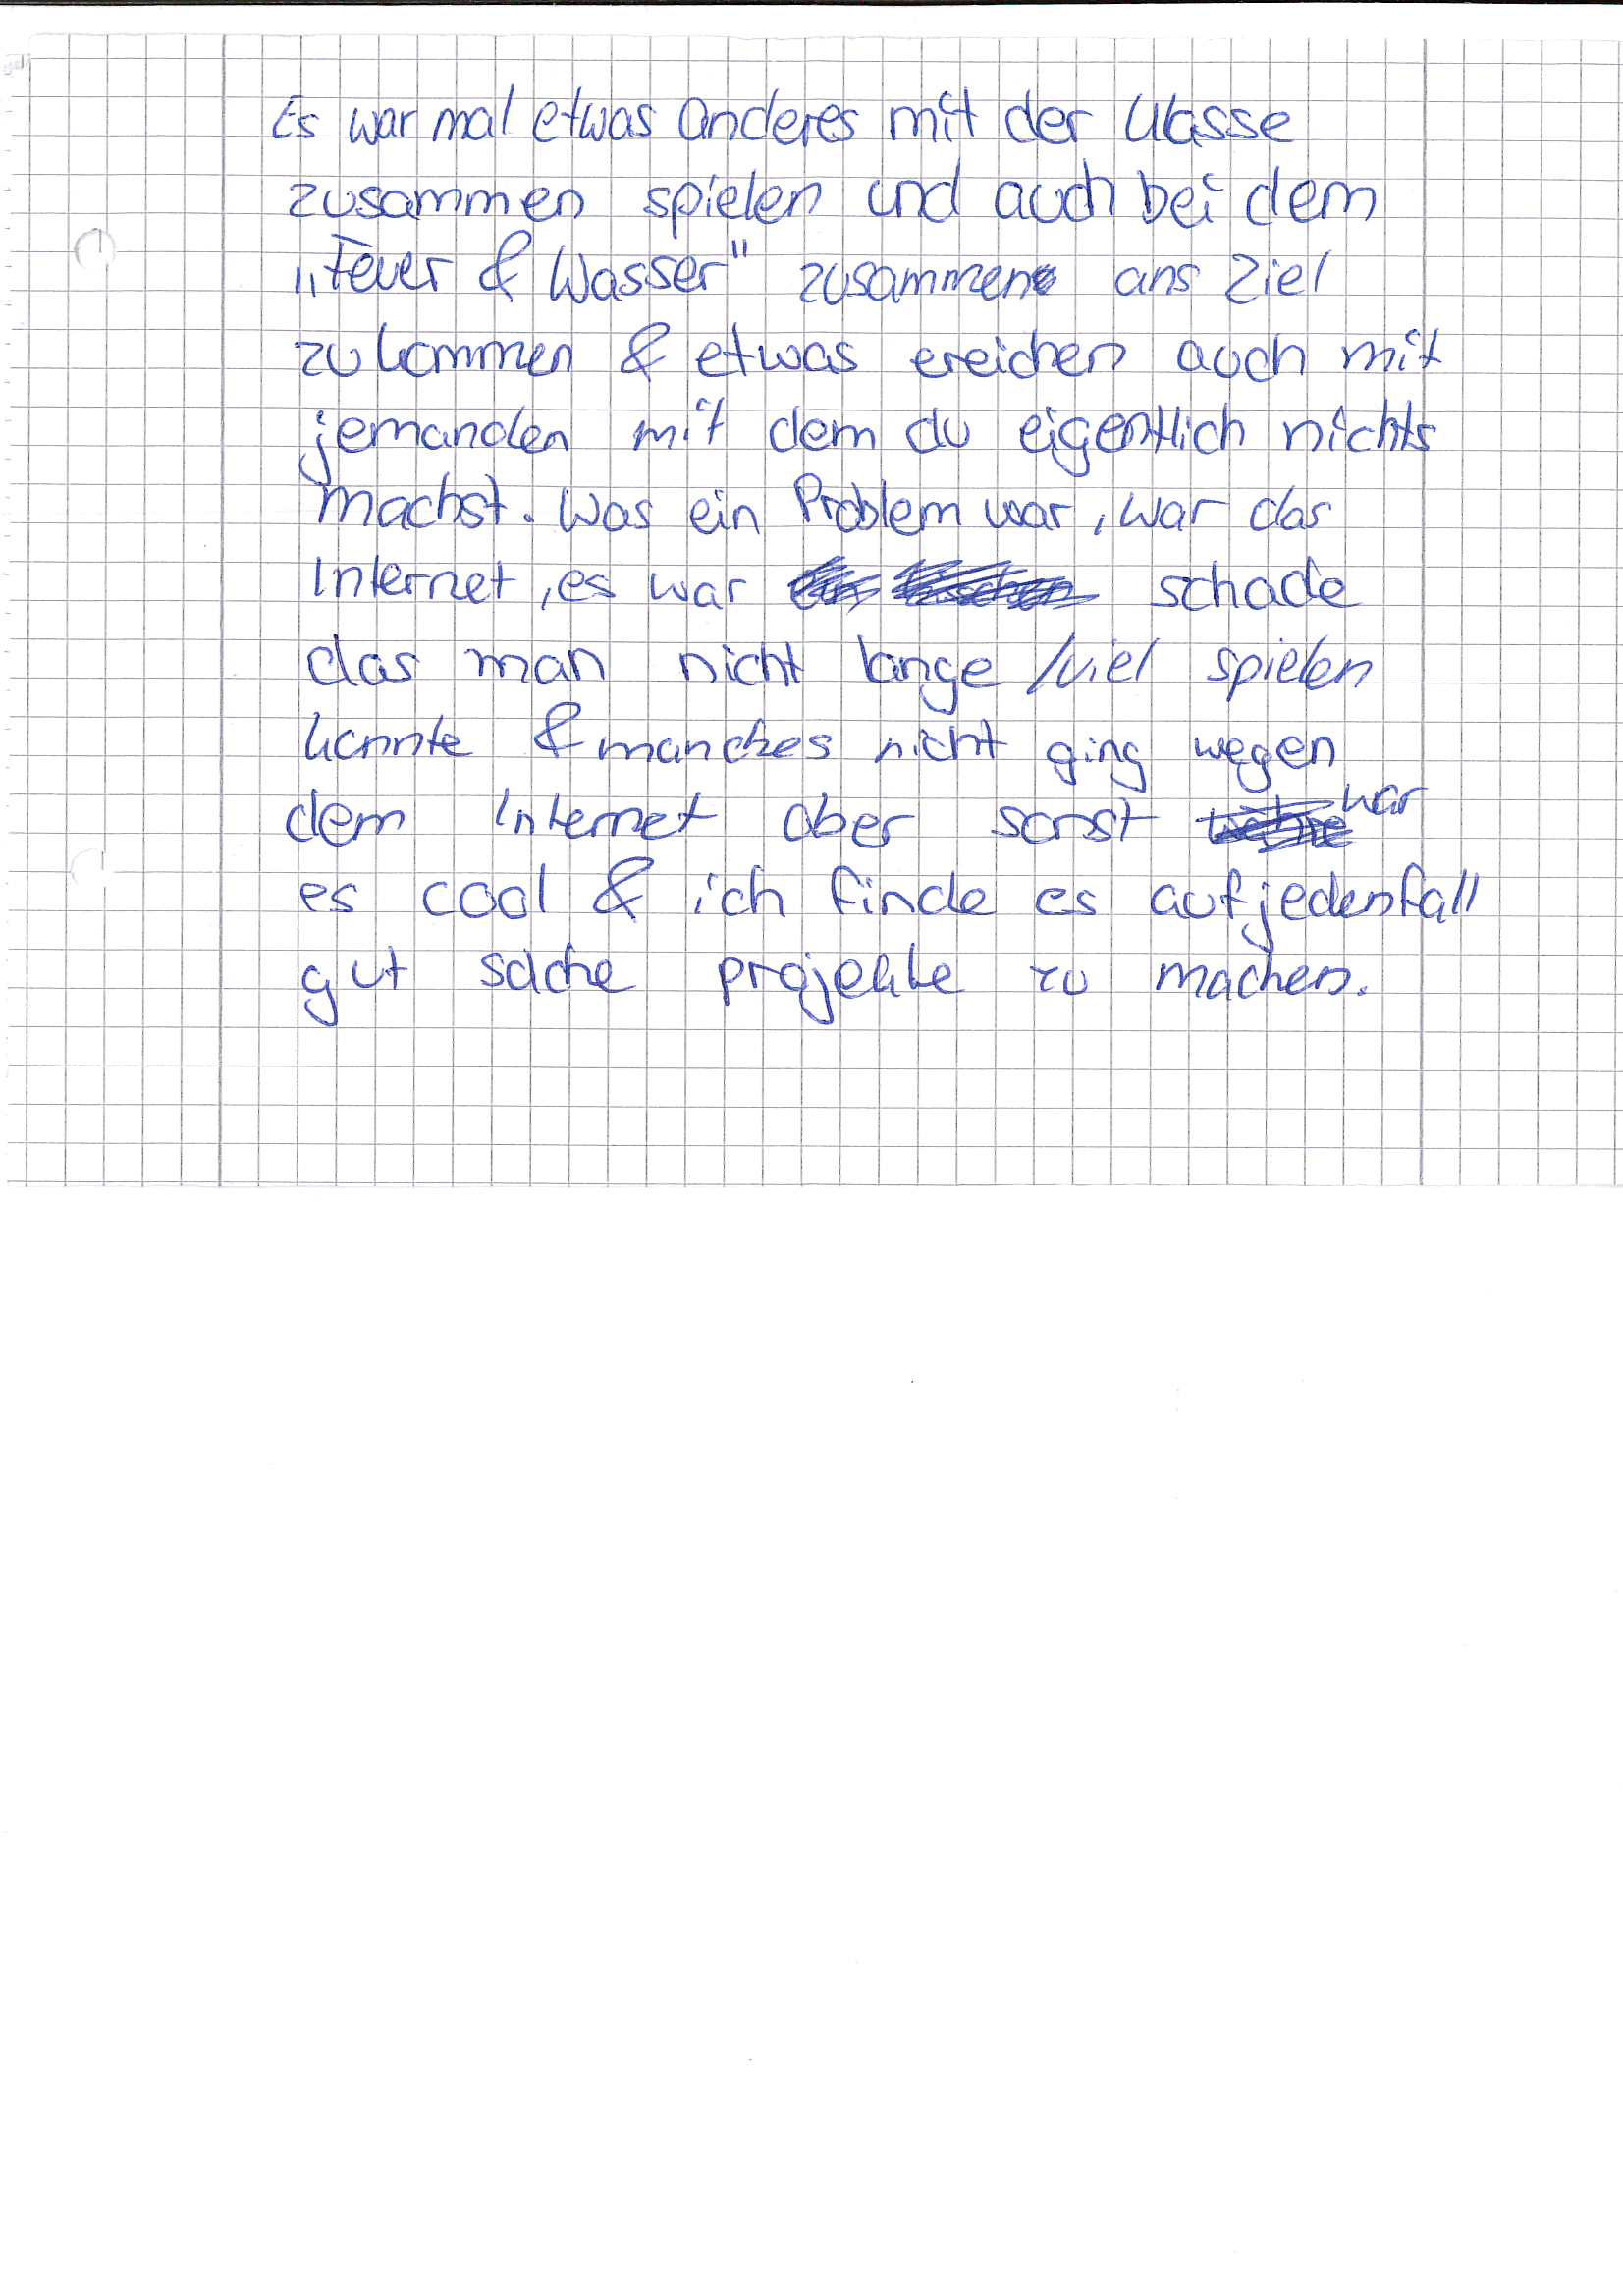 Es war mal etwas anderes mit der Klasse
zusammen spielen und auch bei dem
„Feuer & Wasser" zusammen ans Ziel
zu kommen & etwas ereichen auch mit
jemanden mit dem du eigentlich nichts
machst. Was ein Problem war, war das
Internet, es war schade
das man nicht lange /viel spielen
konnte & manches nicht ging wegen
dem Internet aber sonst war
es cool & ich finde es aufjedenfall
gut solche projekte zu machen.